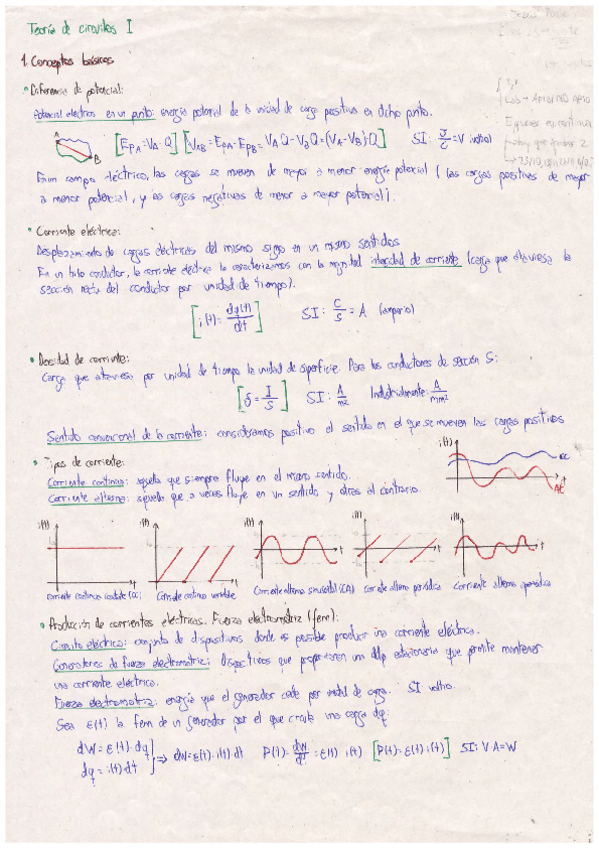 Teoría de circuitos I
1. Conceptos básicos
• Diferencia de potencial:
Potencial eléctrico en un punto: energía potencial de la unidad de carga positiva en dicho punto.
A
B
[E_PA = V_A · Q] [V_AB = E_PA - E_PB = V_A Q - V_B Q = (V_A - V_B) · Q] SI: J/C = V (voltio)
En un campo eléctrico, las cargas se mueven de mayor a menor energía potencial (las cargas positivas de mayor
a menor potencial, y las cargas negativas de menor a mayor potencial).
• Corriente eléctrica:
Desplazamiento de cargas eléctricas del mismo signo en un mismo sentido.
En un hilo conductor, la corriente eléctrica la caracterizamos con la magnitud intensidad de corriente (carga que atraviesa la
sección recta del conductor por unidad de tiempo).
[i(t) = dq(t)/dt] SI: C/S = A (amperio)
• Densidad de corriente:
Carga que atraviesa por unidad de tiempo la unidad de superficie. Para los conductores de sección S:
[δ = I/S] SI: A/m2 Industrialmente: A/mm2
Sentido convencional de la corriente: consideramos positivo el sentido en el que se mueven las cargas positivas
• Tipos de corriente:
Corriente continua: aquella que siempre fluye en el mismo sentido.
Corriente alterna: aquella que a veces fluye en un sentido y otras el contrario.
i(t)
DC
AC
i(t) i(t) i(t) i(t) i(t)
t t t t
corriente continua constante (DC) Corriente continua variable Corriente alterna sinusoidal (CA) corriente alterna periódica Corriente alterna aperiódica
• Producción de corrientes eléctricas. Fuerza electromotriz (fem):
Circuito eléctrico: conjunto de dispositivos donde es posible producir una corriente eléctrica.
Generadores de fuerza electromotriz: Dispositivos que proporcionan una ddp estacionaria que permite mantener
una corriente eléctrica.
Fuerza electromotriz: energía que el generador cede por unidad de carga. SI voltio.
Sea ε(t) la fem de un generador por el que circula una carga dq:
dW = ε(t) · dq
dq = i(t) dt
⇒ dW = ε(t) · i(t) dt P(t) = dW/dt = ε(t) · i(t) [P(t) = ε(t) · i(t)] SI: V·A = W